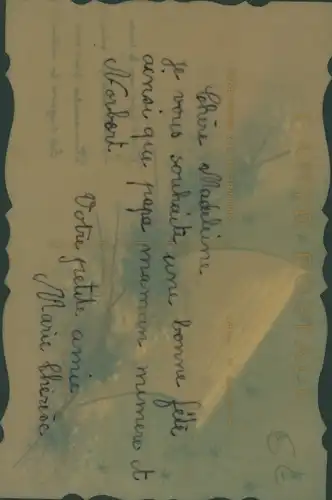 Chère Madeleine
Je vous souhaite une bonne fête
ainsi que papa maman mémère et
Norbert.
Votre petite amie
Marie Thérèse